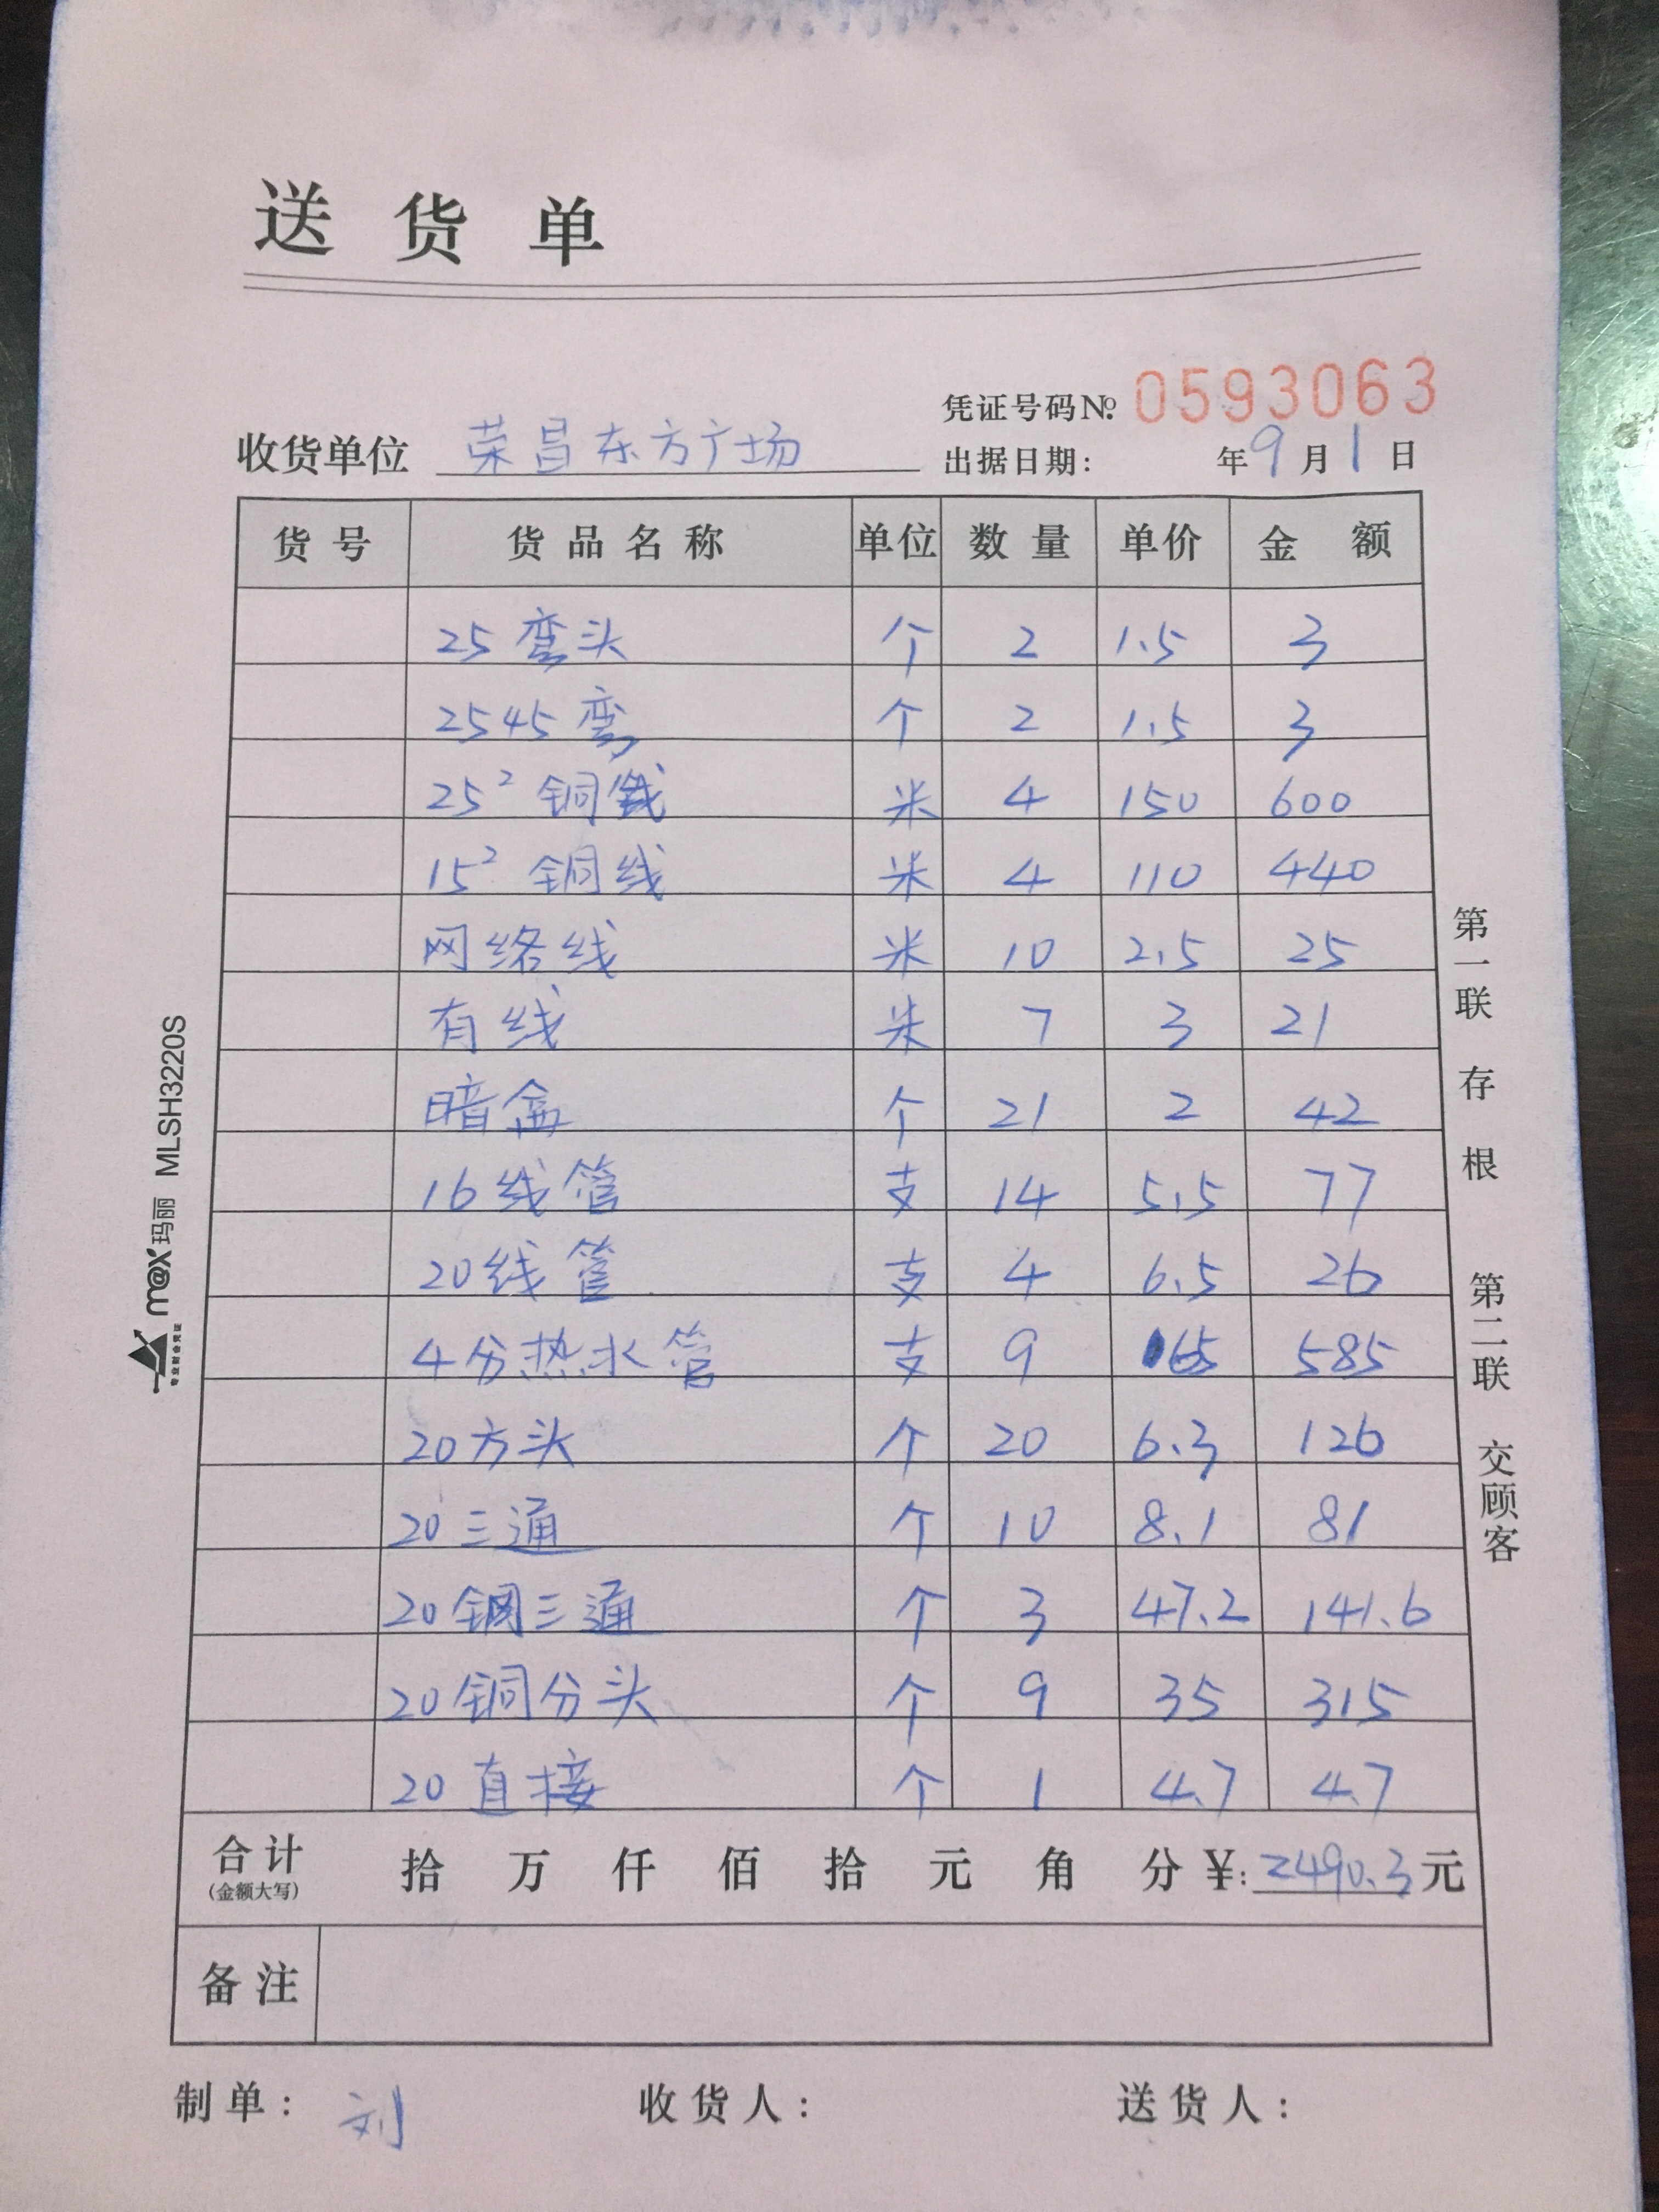 送货单
凭证号码№ 0593063
收货单位 荣昌东方广场 出据日期: 年9月1日
货号 货品名称 单位 数量 单价 金额
25弯头 个 2 1.5 3
2545弯 个 2 1.5 3
25² 铜线 米 4 150 600
15² 铜线 米 4 110 440
网络线 米 10 2.5 25
有线 米 7 3 21
暗盒 个 21 2 42
16线管 支 14 5.5 77
20线管 支 4 6.5 26
4分热水管 支 9 65 585
20方头 个 20 6.3 126
20三通 个 10 8.1 81
20铜三通 个 3 47.2 141.6
20铜分头 个 9 35 315
20直接 个 1 4.7 4.7
合计 拾 万 仟 佰 拾 元 角 分 ¥:2490.3元
(金额大写)
备注
制单: 刘 收货人: 送货人:
第一联 存根 第二联 交顾客
m@x玛丽 MLSH3220S
专业财会凭证